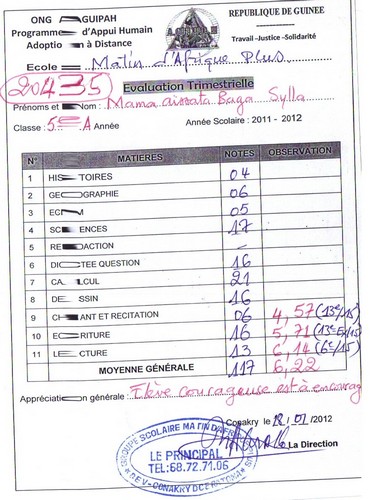 ONG AGUIPAH
REPUBLIQUE DE GUINEE
Programme d'Appui Humain
Adoption à Distance
Travail -Justice -Solidarité
Ecole Matin d'Afrique Plus
20435
Evaluation Trimestrielle
Prénoms et Nom : Mama aissata Baga Sylla
Classe : 5ème A Année
Année Scolaire : 2011 - 2012
N° MATIERES NOTES OBSERVATION
1 HISTOIRES 04
2 GEOGRAPHIE 06
3 ECM 05
4 SCIENCES 17
5 REDACTION -
6 DICTEE QUESTION 16
7 CALCUL 21
8 DESSIN 16
9 CHANT ET RECITATION 06 4,57 (13e/15)
10 ECRITURE 16 5,71 (13e/15)
11 LECTURE 13 6,14 (6e/15)
MOYENNE GÉNÉRALE 117 6,22
Appréciation générale : Elève courageuse est à encourag
Conakry le 12/01/2012
La Direction
GROUPE SCOLAIRE MATIN D'AFRIQUE PLUS
LE PRINCIPAL
TEL:68.72.71.06
CONAKRY